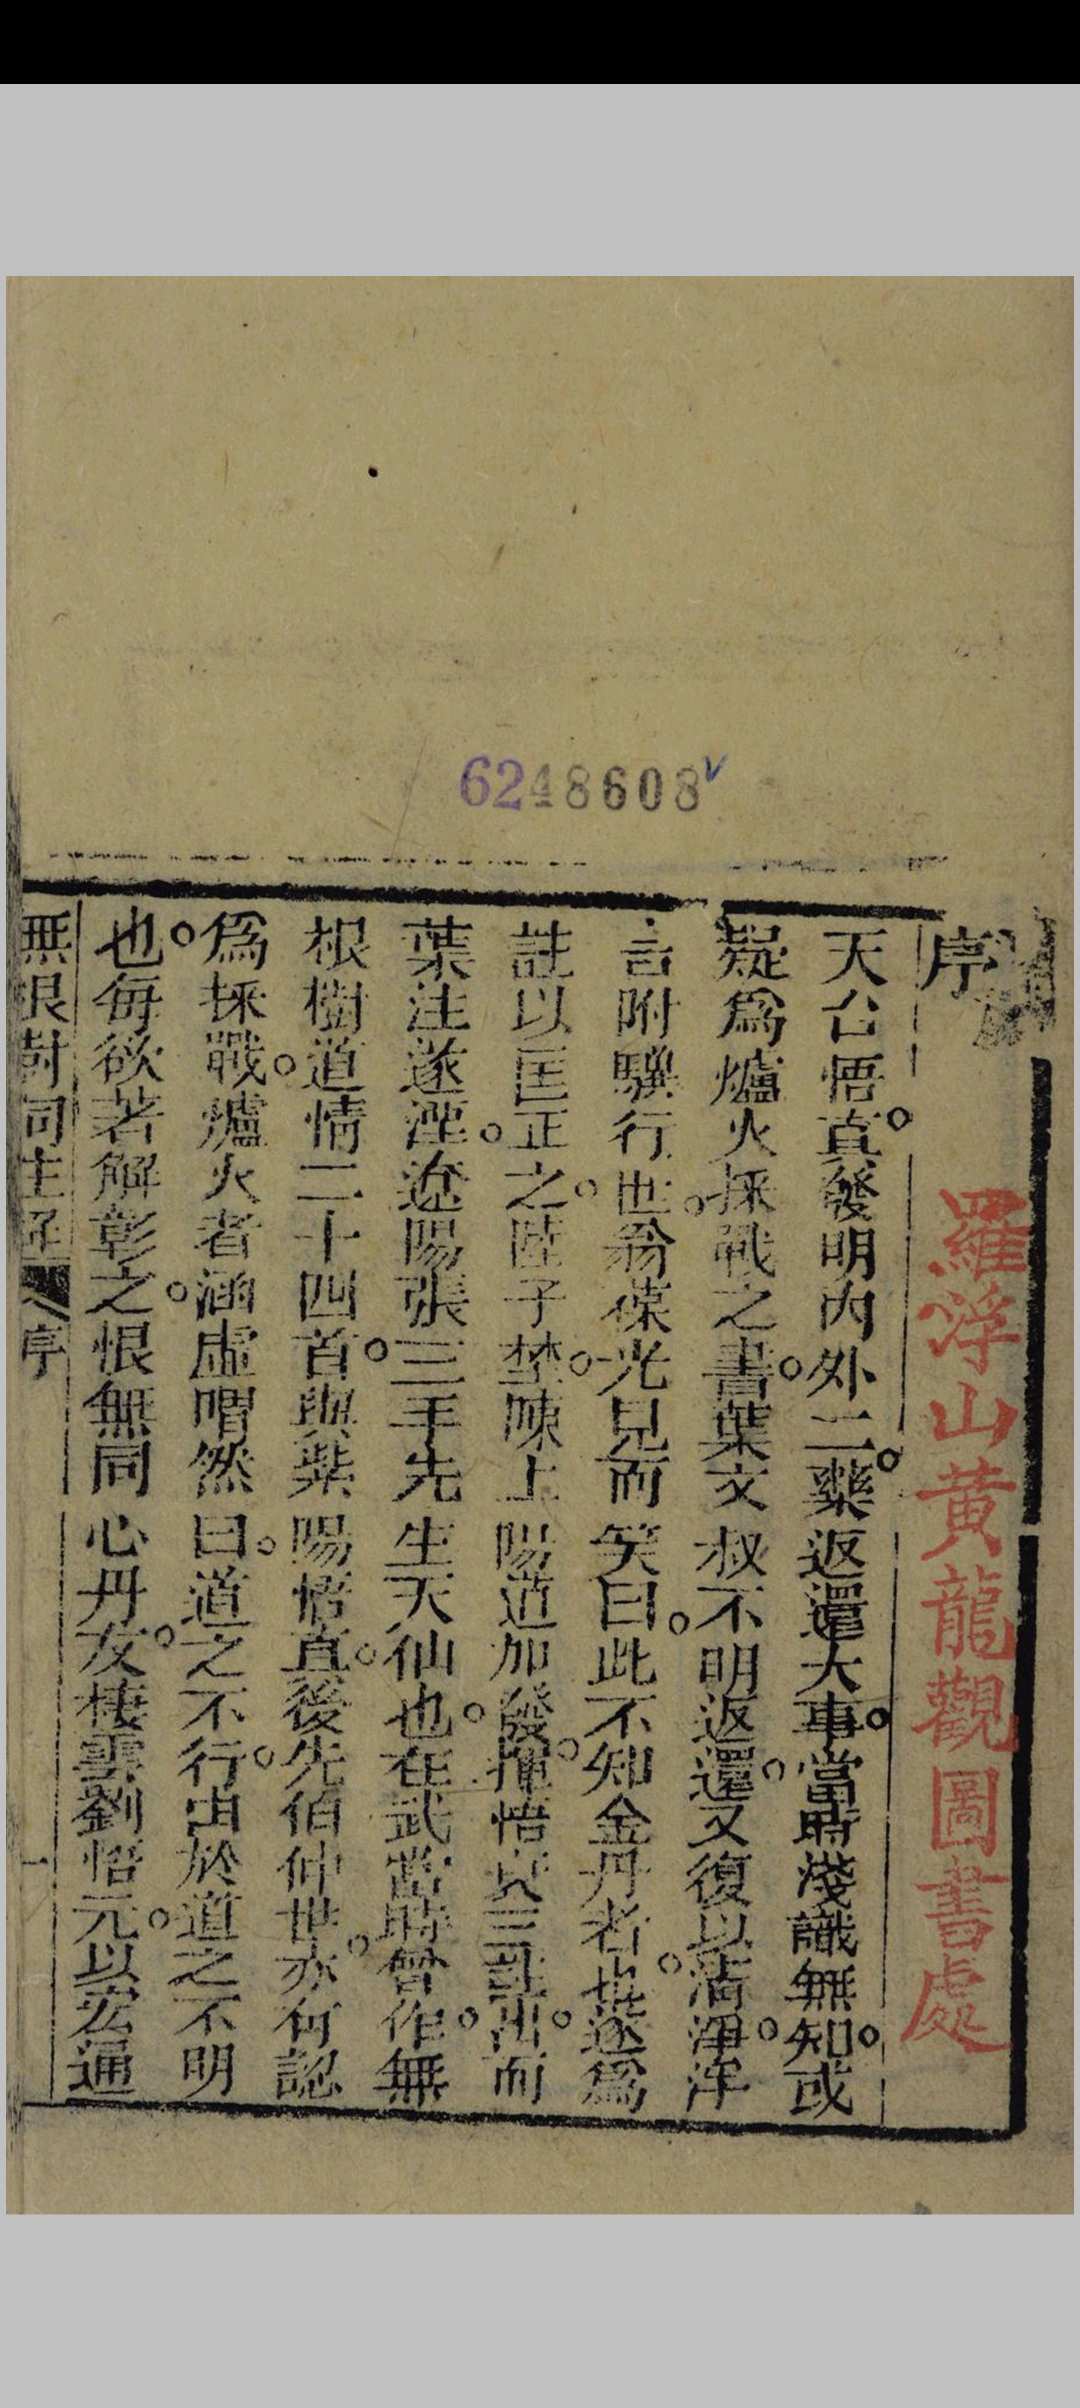 6248608
羅浮山黃龍觀圖書處
序
天台悟真發明內外二藥返還大事當時淺識無知或
疑爲爐火採戰之書葉文叔不明返還又復以清淨渾
言附驥行世翁葆光見而笑曰此不知金丹者也遂爲
註以匡正之陸子埜陳上陽遞加發揮悟真三註出而
葉注遂湮遼陽張三丰先生天仙也在武當時曾作無
根樹道情二十四首與紫陽悟真後先伯仲世亦有認
爲採戰爐火者涵虛喟然曰道之不行由於道之不明
也每欲著解彰之恨無同心丹友棲雲劉悟元以宏通
無根樹 序 一